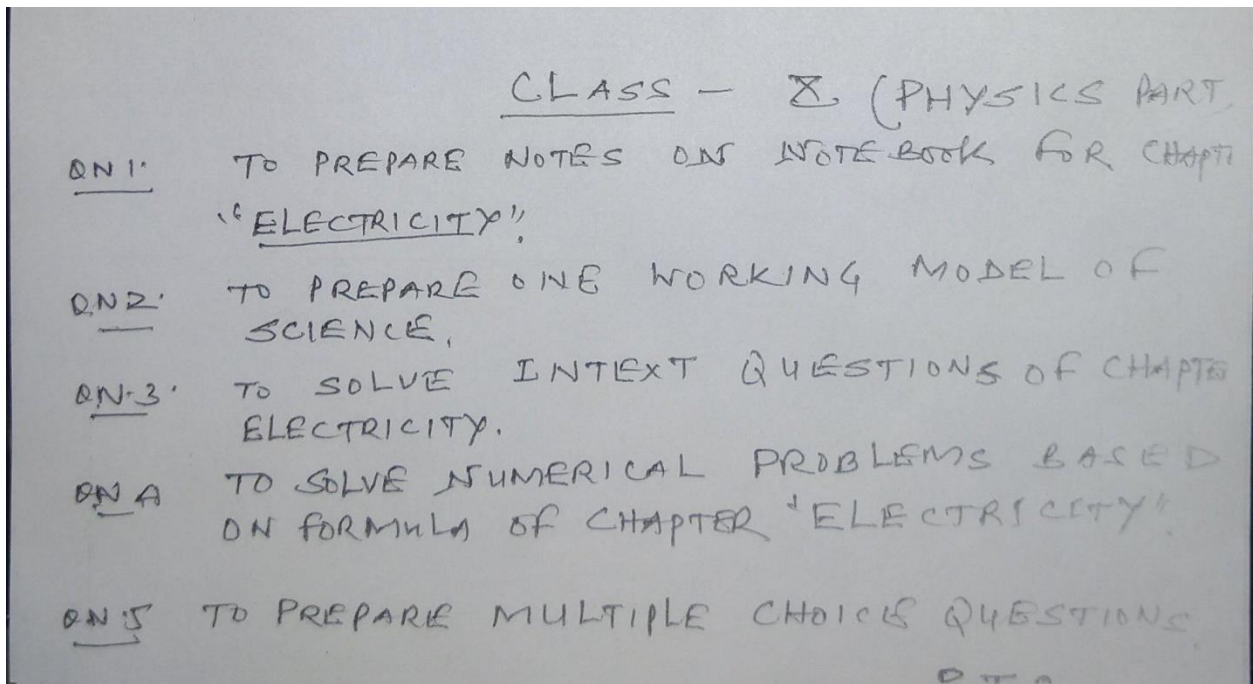 CLASS - X (PHYSICS PART
QN 1. TO PREPARE NOTES ON NOTE BOOK FOR CHAPTE
"ELECTRICITY".
QN 2. TO PREPARE ONE WORKING MODEL OF
SCIENCE.
QN.3. TO SOLVE INTEXT QUESTIONS OF CHAPTE
ELECTRICITY.
QN 4 TO SOLVE NUMERICAL PROBLEMS BASED
ON FORMULA OF CHAPTER "ELECTRICITY".
QN.5 TO PREPARE MULTIPLE CHOICE QUESTIONS
P T O